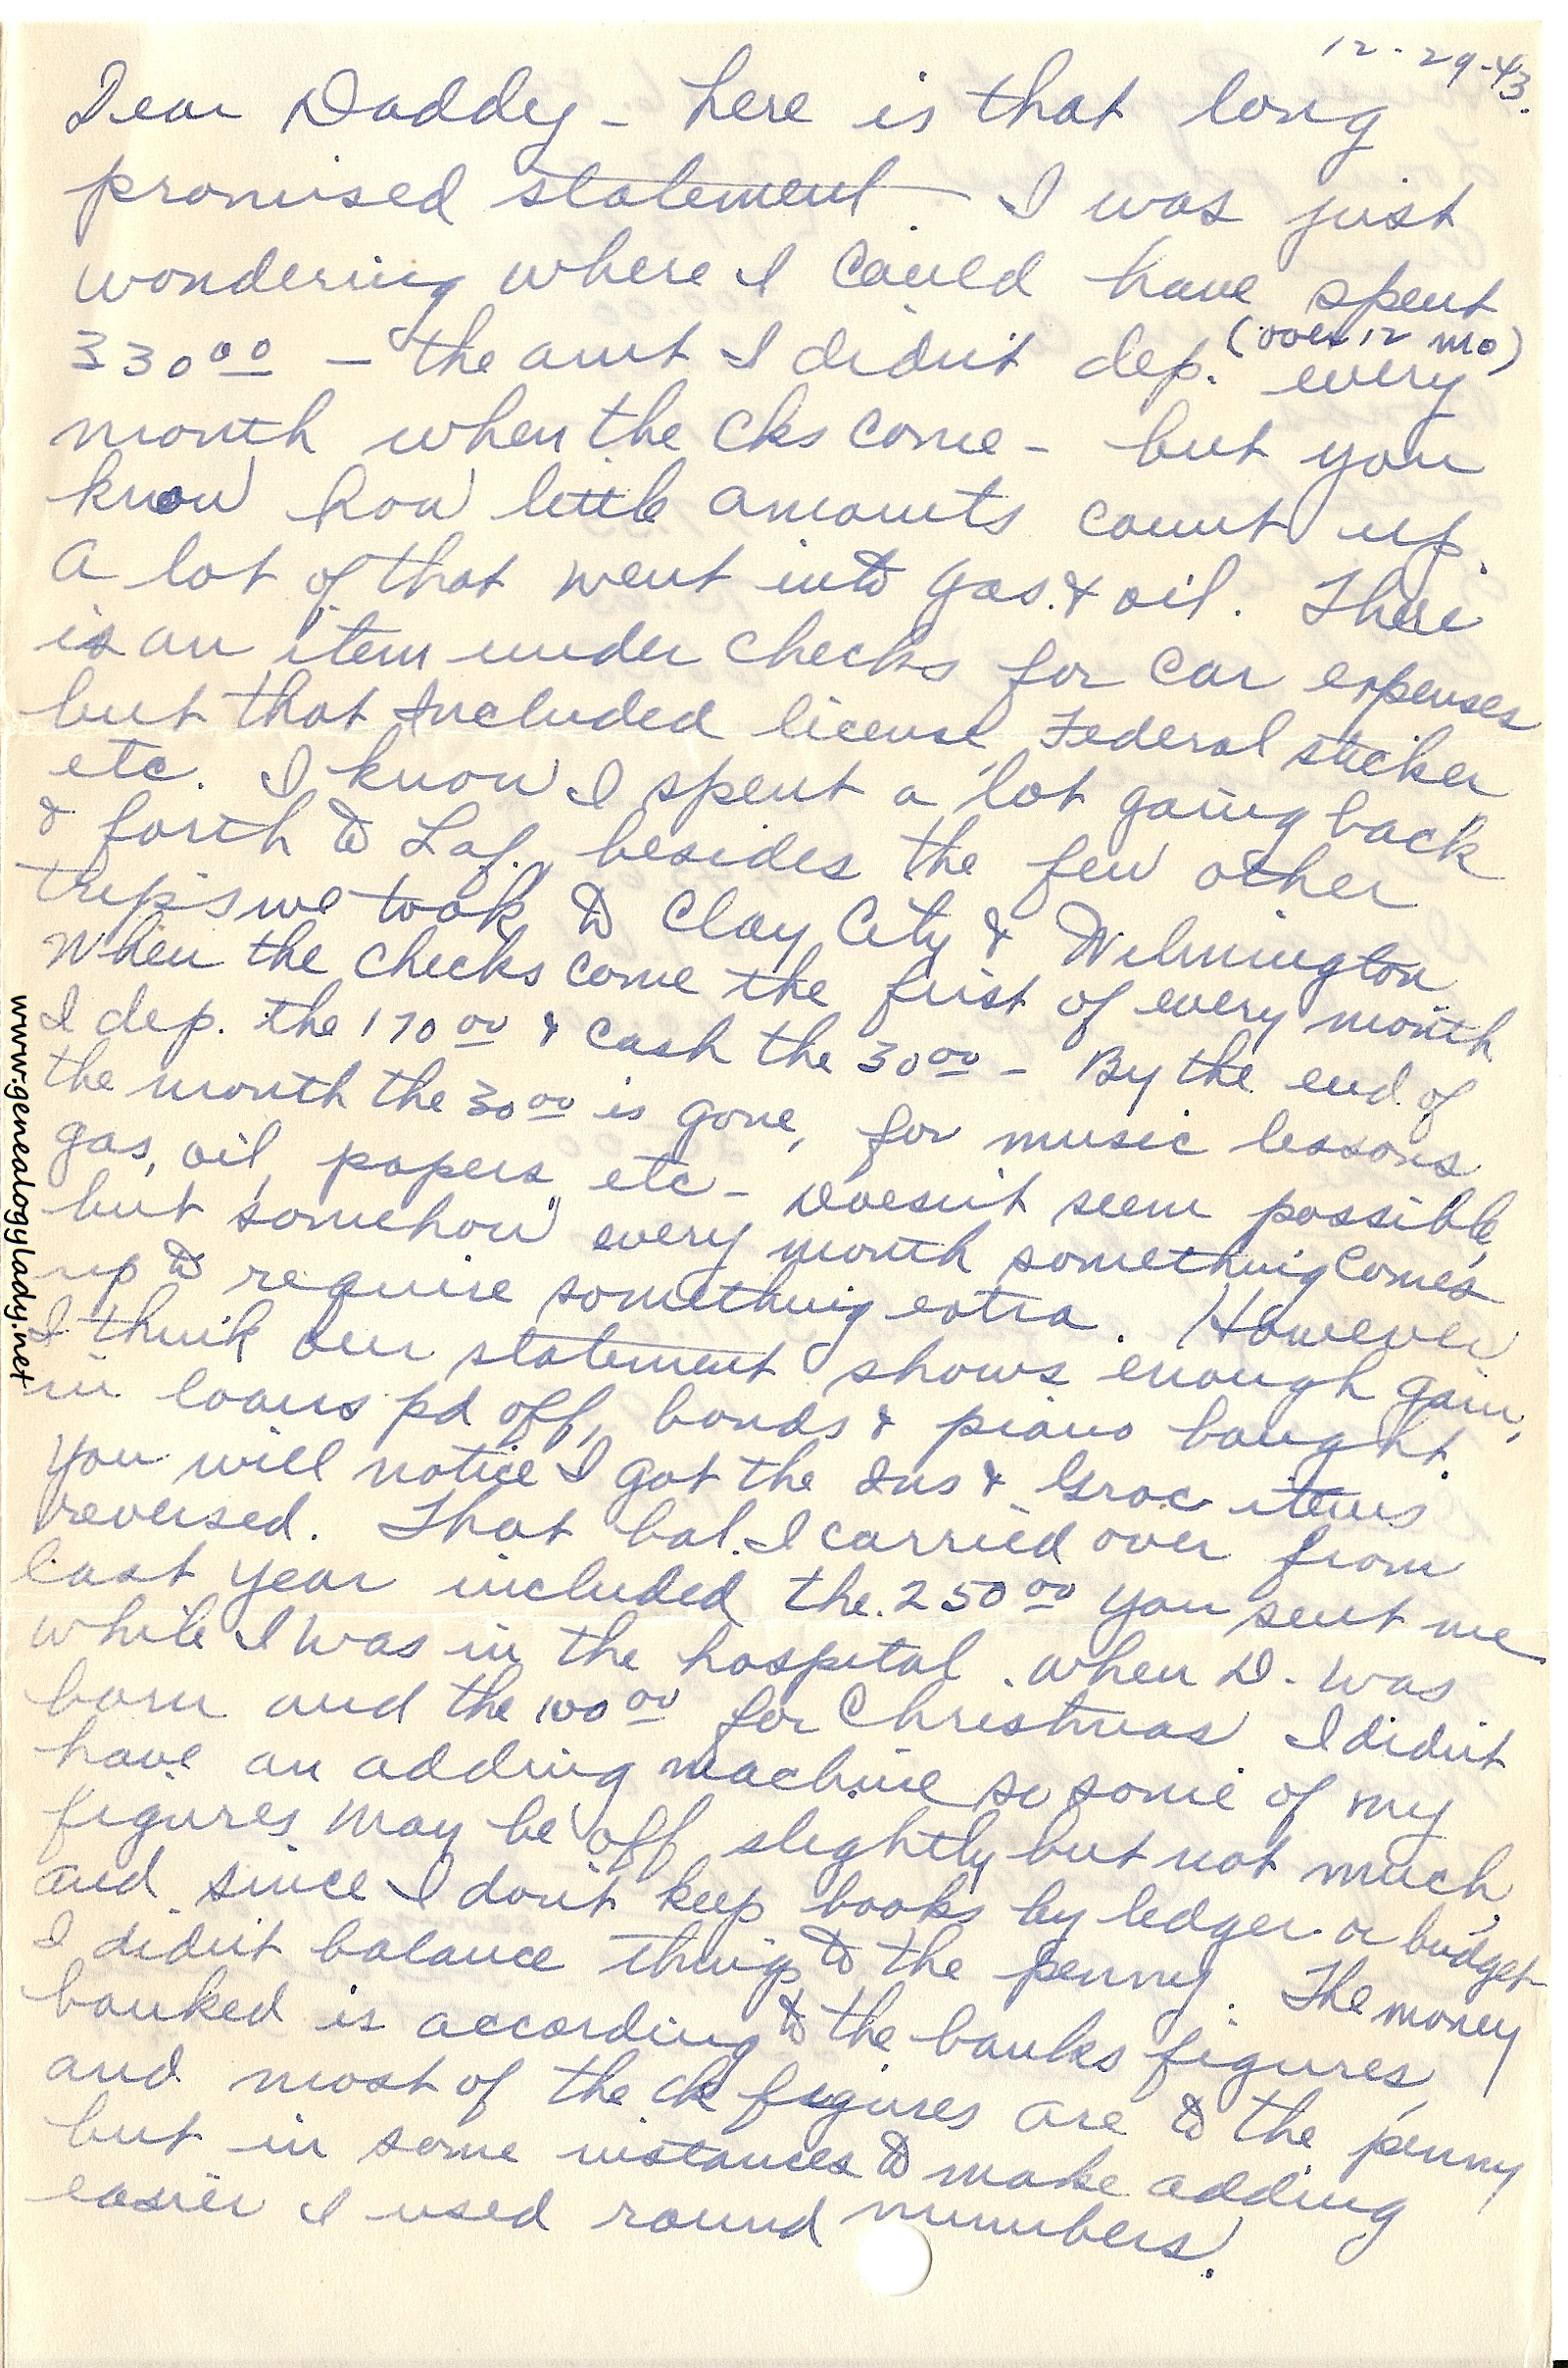 12-29-43.
Dear Daddy - here is that long
promised statement - I was just
wondering where I could have spent
330 00 - the amt I didn't dep. (over 12 mo) every
month when the cks come - but you
know how little amounts count up.
A lot of that went into gas. & oil. There
is an item under checks for car expenses
but that included license, Federal sticker
etc. I know I spent a lot going back
& forth to Laf., besides the few other
trips we took to Clay City & Wilmington
When the checks come the first of every month
I dep. the 170 00 & cash the 30 00 - By the end of
the month the 30 00 is gone, for music lessons
gas, oil, papers, etc - Doesn't seem possible,
but somehow every month something comes
up to require something extra. However
I think our statement shows enough gain,
in loans pd off, bonds & piano bought.
You will notice I got the Ins & Groc items
reversed. That bal. I carried over from
last year included the 250 00 you sent me
while I was in the hospital when D. was
born and the 100 00 for Christmas I didn't
have an adding machine so some of my
figures may be off slightly but not much,
and since I don't keep books by ledger or budget
I didn't balance things to the penny. The money
banked is according to the banks figures,
and most of the ck figures are to the penny
but in some instances to make adding
easier I used round numbers.
www.genealogylady.net